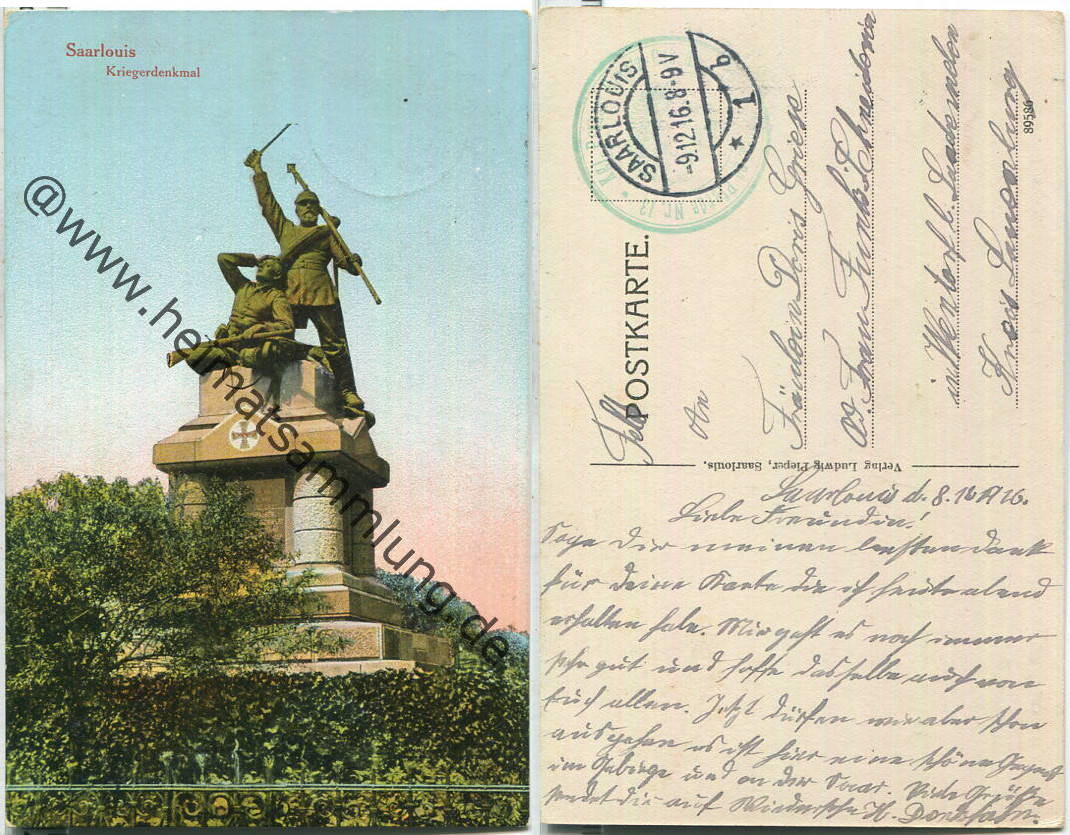 Saarlouis
Kriegerdenkmal
@www.heimatsammlung.de
SAARLOUIS
-9.12.16.8-9V
* 1 b
Feld
POSTKARTE.
An
Fräulein Doris Griese
89586
Verlag Ludwig Pieper, Saarlouis.
Saarlouis d. 8.
Liebe Freundin!
Sage Dir meinen besten Dank
für deine Karte die ich heute abend
erhalten habe. Mir geht es noch immer
sehr gut und hoffe dasselbe auch von
Euch allen. Jetzt dürfen wir aber schon
ausgehen es ist hier eine schöne Gegend
im Gebirge und an der Saar. Viele Grüße
sendet die auf Wiedersehn H.